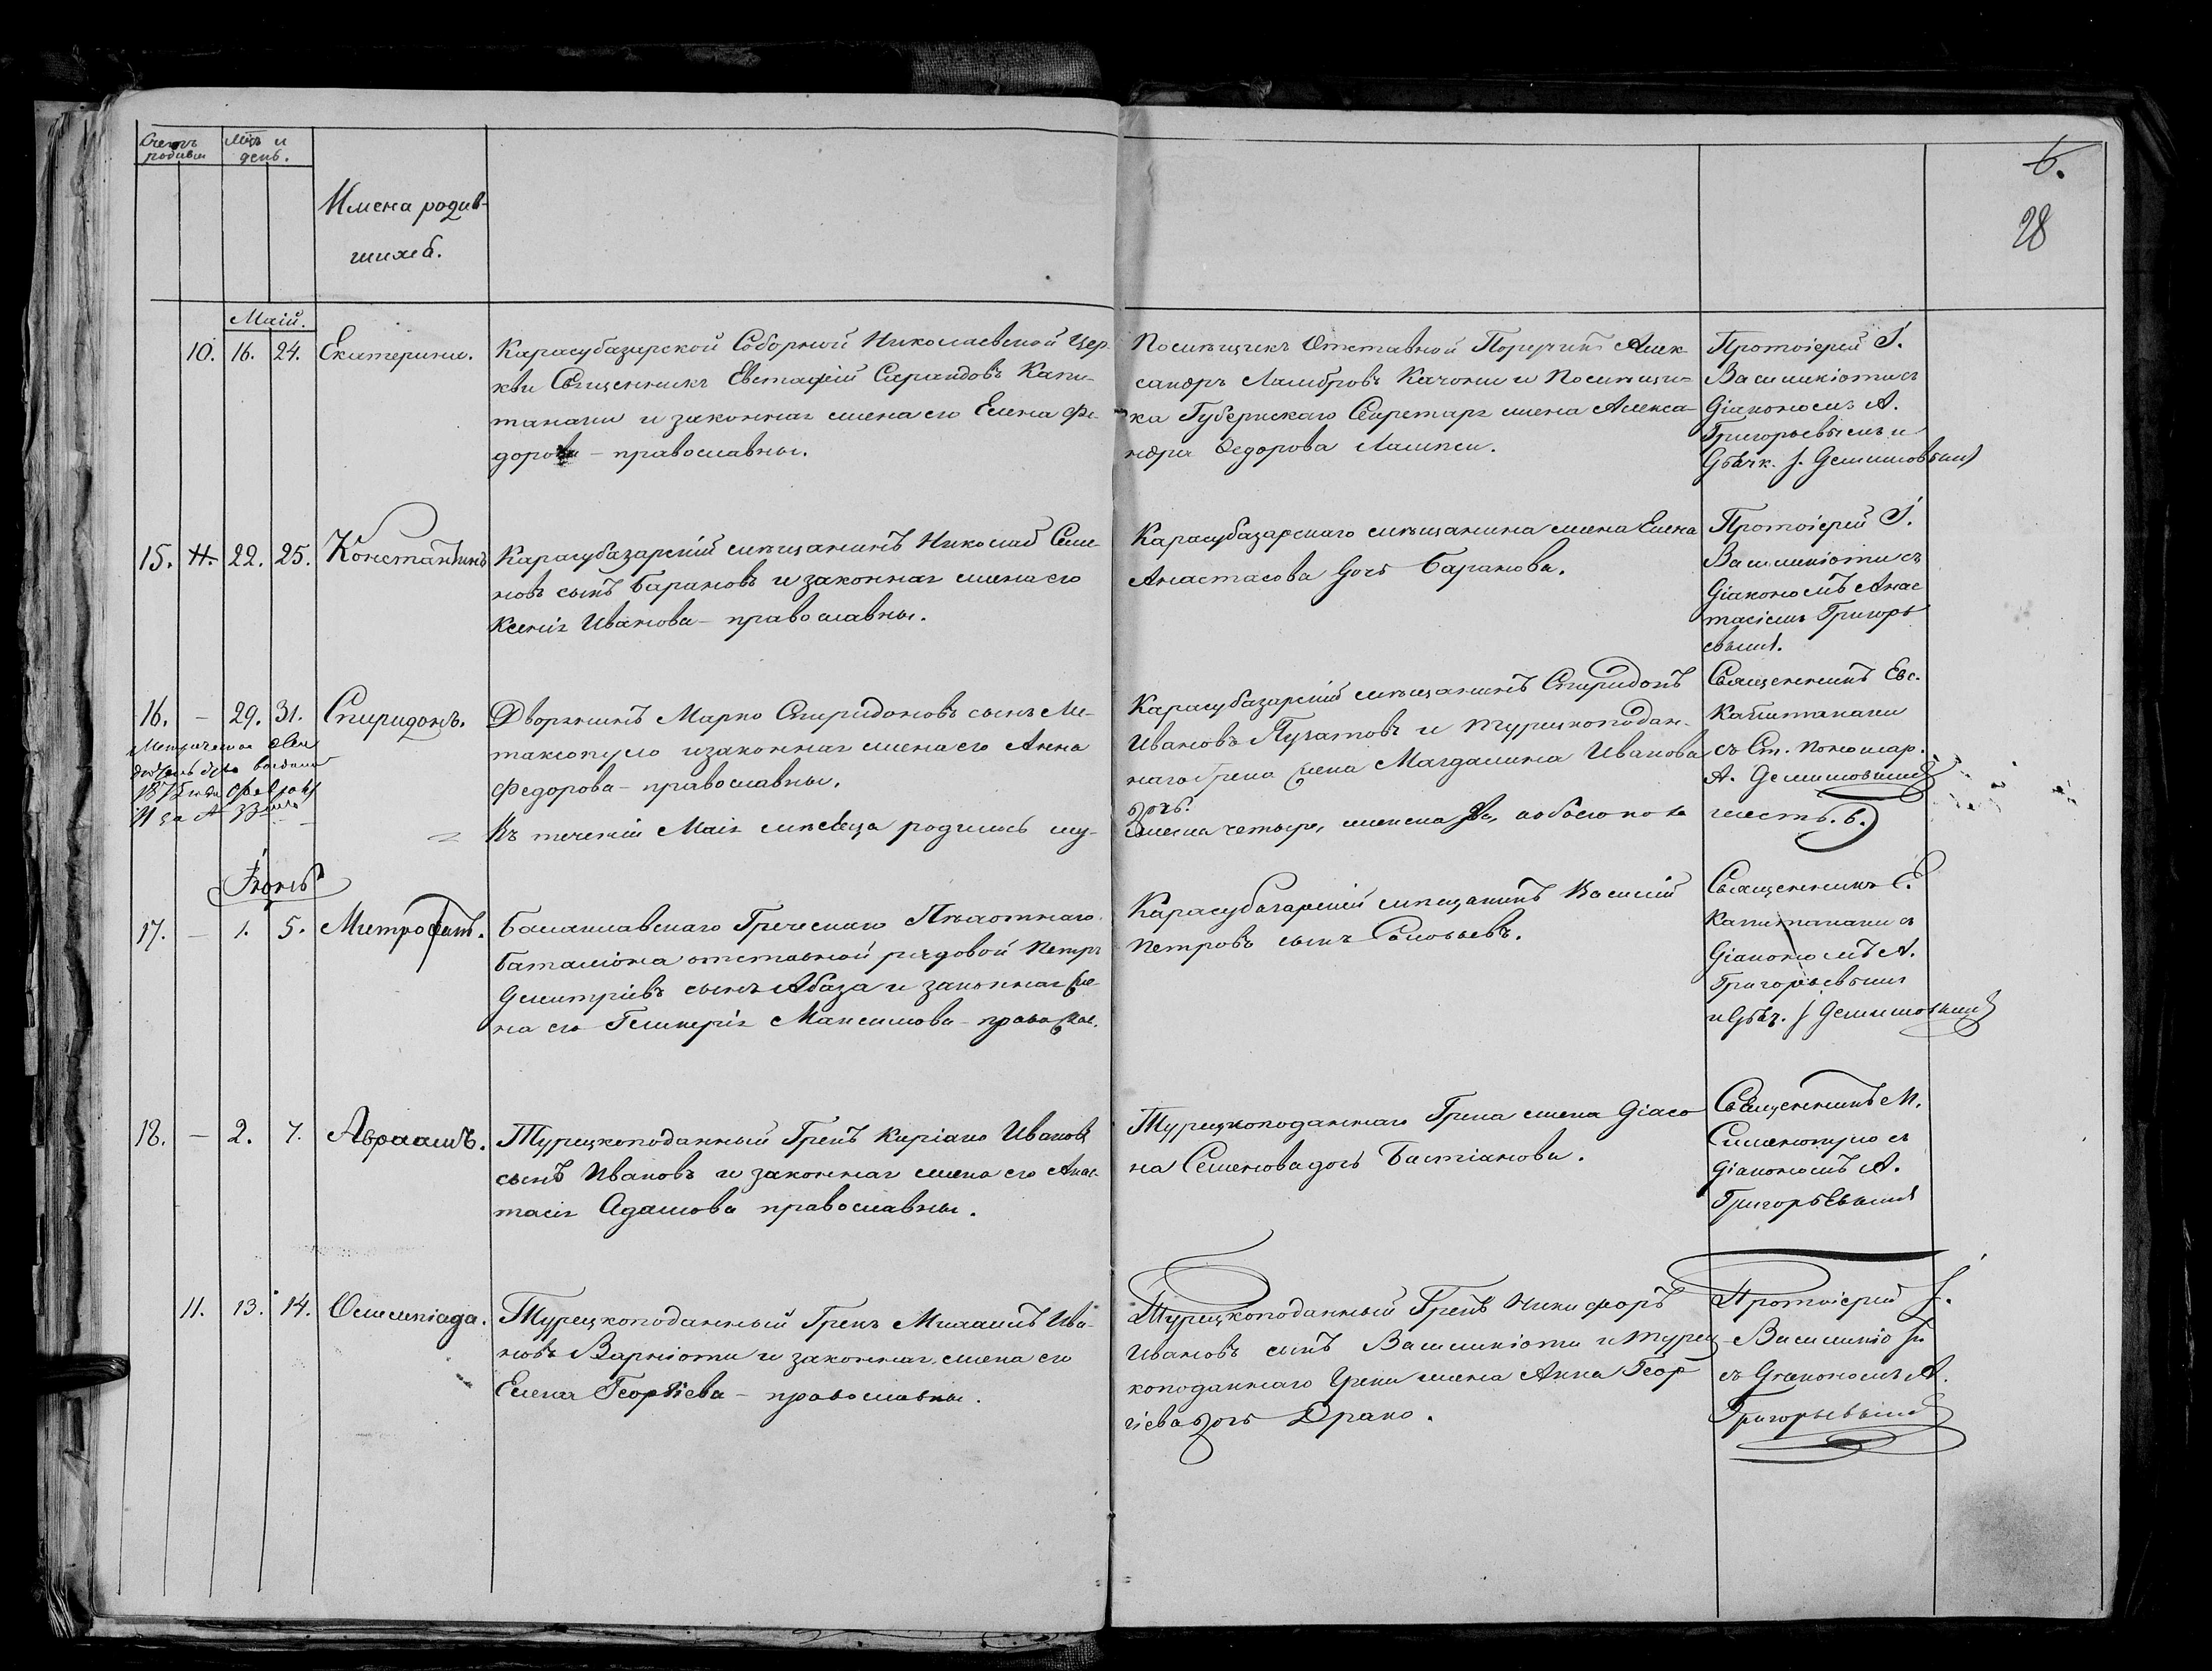 Счетъ родивш
Мѣц и день.
Имена родив-
шихъ.
6.
28
Маій.
10. 16. 24. Екатерина.
Карасубазарской Соборной Николаевской Цер
кви Священникъ Евстафій Сарандовъ Капи-
танаки и законная жена его Елена Фе-
дорова - православны.
Помѣщикъ Отставной Поручикъ Алек
сандръ Ламбровъ Качони и Помѣщи-
ка Губернскаго Секретаря жена Алекса-
ндра Федорова Лампси.
Протоіерей І.
Василикіоти съ
Діакономъ А.
Григорьевымъ и
Дьячк. І. Демишовымъ
15. 11. 22. 25. Константинъ
Карасубазарскій мѣщанинъ Николай Семе-
новъ сынъ Барановъ и законная жена его
Ксенія Иванова - православны.
Карасубазарскаго мѣщанина жена Елена
Анастасова дочь Баранова.
Протоіерей І.
Василикіоти съ
Діакономъ Анас
тасіемъ Григорь
евымъ.
16. - 29. 31. Спиридонъ.
Метрическое сви
дѣтельство выдано
1875 года февраля
11 за № 33
Дворянинъ Марко Спиридоновъ сынъ Ли-
таксопуло и законная жена его Анна
Федорова - православны.
Карасубазарскій мѣщанинъ Спиридонъ
Ивановъ Пугатовъ и турецкоподан-
наго Грека жена Магдалина Иванова
дочь.
Священникъ Евс.
Капитанаки
съ Ст. Пономар.
А. Демишовымъ
Въ теченіи Маія мѣсяца родилось му-
жеска четыре, женска два, а обоего пола
шесть. 6.
Іюнь
17. - 1. 5. Митрофанъ.
Балаклавскаго Греческаго Пѣхотнаго
баталіона отставной рядовой Петръ
Дмитріевъ сынъ Абаза и законная же-
на его Гликерія Максимова - правосла.
Карасубазарскій мѣщанинъ Василій
Петровъ сынъ Соловьевъ.
Священникъ Е.
Капитанаки съ
Діакономъ А.
Григорьевымъ
и Дьяч. І Демишовымъ
18. - 2. 7. Авраамъ.
Турецкоподанный Грекъ Киріако Ивановъ
сынъ Ивановъ и законная жена его Анас-
тасія Адамова православны.
Турецкоподаннаго Грека жена Діасо
на Семенова дочь Бастіанова.
Священникъ М.
Сименопуло съ
Діакономъ А.
Григорьевымъ
11. 13. 14. Олимпіада.
Турецкоподанный Грекъ Михаилъ Ива-
новъ Варніоти и законная жена его
Елена Георгіева - православны.
Турецкоподанный Грекъ Никифоръ
Ивановъ сынъ Василикіоти и турец
коподаннаго Грека жена Анна Геор
гіева дочь Драко.
Протоіерей І.
Василикіоти
съ Діакономъ А.
Григорьевымъ